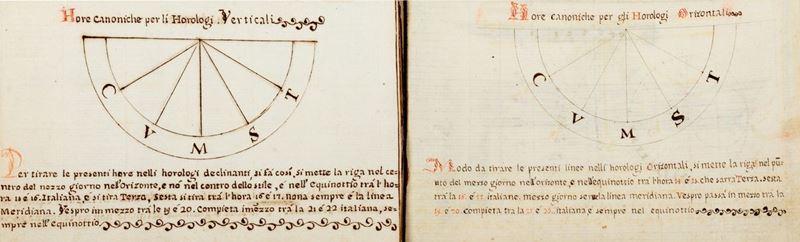 Hore canoniche per li Horologi Verticali
C V M S T
Per tirare le presenti hore nelli horologi declinanti si fa così, si mette la riga nel ce-
ntro del mezzo giorno nell'orizonte, e nò nel centro dello stile, e nell'Equinottio trà l'ho-
ra 15 e 16. Italiana, e si tira Terza, Sesta si tira trà l'hora 16 e 17. nona sempre è la linea
Meridiana. Vespro in mezzo trà le 19 e 20. Compieta imezzo trà la 21 e 22 italiana, sem
mpre nell'equinottio.
Hore canoniche per gli Horologi Orizontali
C V M S T
Modo da tirare le presenti linee nelli horologi Orizontali, si mette la riga nel pũ-
nto del mezzo giorno nell'orizonte, e nell'equinottio trà l'hora e 15. che sarra Terza. sesta
trà la 16. e 17. italiane. mezzo giorno serue la linea meridiana. Vespro passa in mezo trà la
19. e 20. compieta trà la 21 e 22. italiana, e sempre nel equinottio